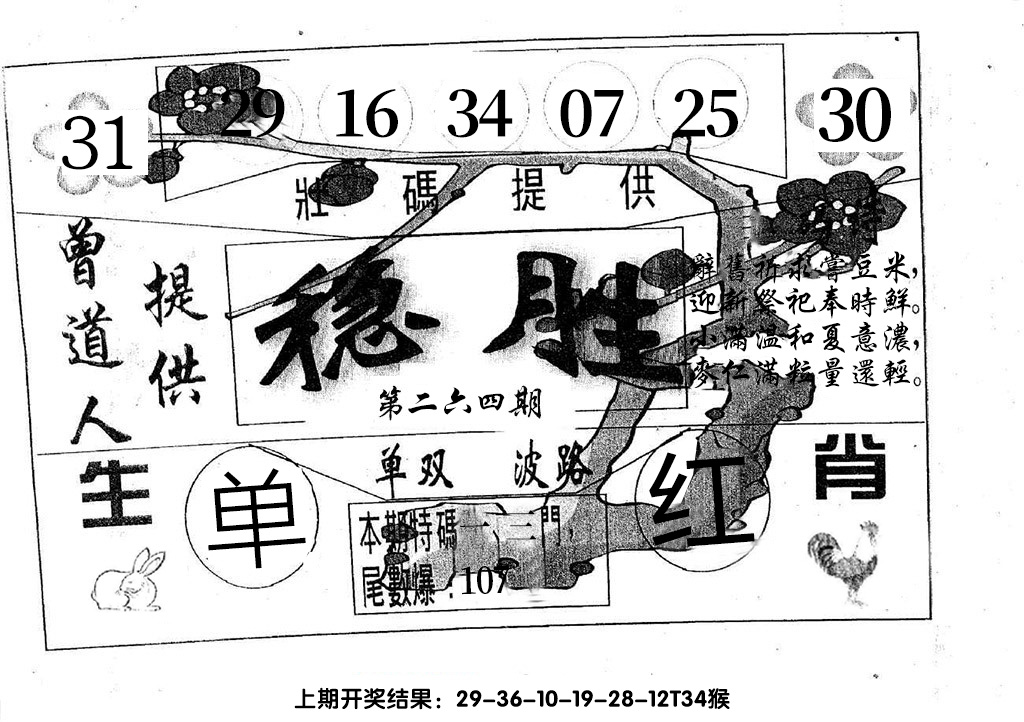 31 29 16 34 07 25 30
壯碼提供
曾道人
提供
稳胜
第二六四期
辭舊祈求嘗豆米，
迎新祭祀奉時鮮。
小滿温和夏意濃，
麥仁滿粒量還輕。
单双 波路
生 肖
单
红
本期特碼一、三門，
尾數爆：107
上期开奖结果：29-36-10-19-28-12T34猴